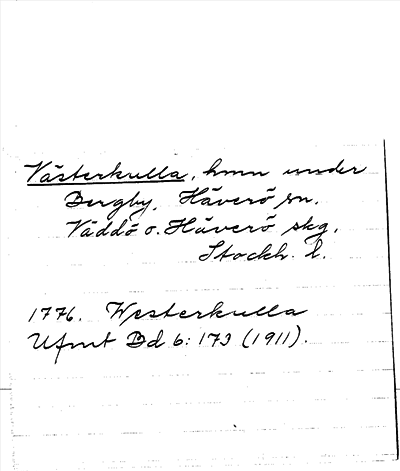 Västerkulla, hmn under
Bergby, Häverö sn.
Väddö o. Häverö skg.
Stockh. l.
1776. Westerkulla
Ufmt Bd 6: 173 (1911).